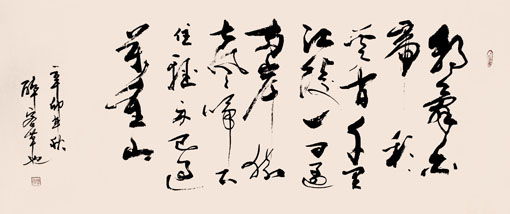 朝辞白
帝彩
云间千里
江陵一日还
两岸猿
声啼不
住轻舟已过
万重山
辛卯秋
醉客草也